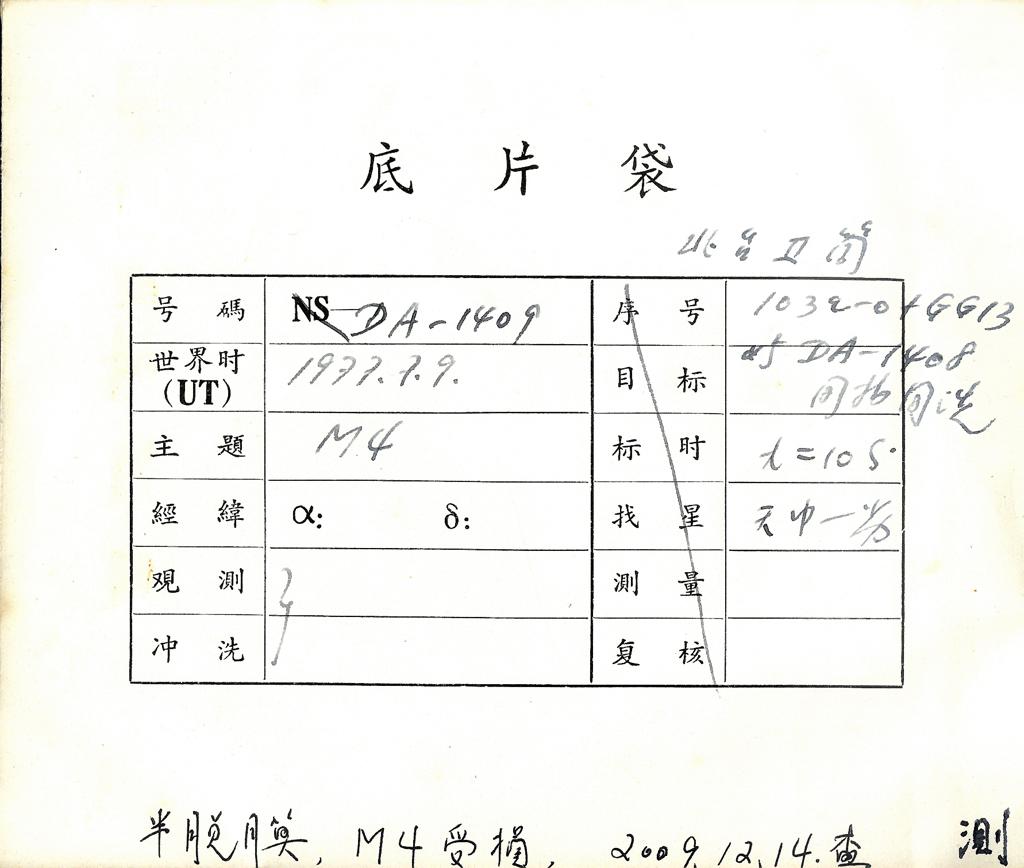 底片袋
北台卫筒
号碼 NS DA-1409 序号 103a-O+GG13
世界时 (UT) 1977.7.9. 目标 与DA-1408
同拍同洗
主題 M4 标时 t=10S
經緯 α: δ: 找星
观測 測量
冲洗 复核
半脱膜, M4受损, 2009.12.14.查 測